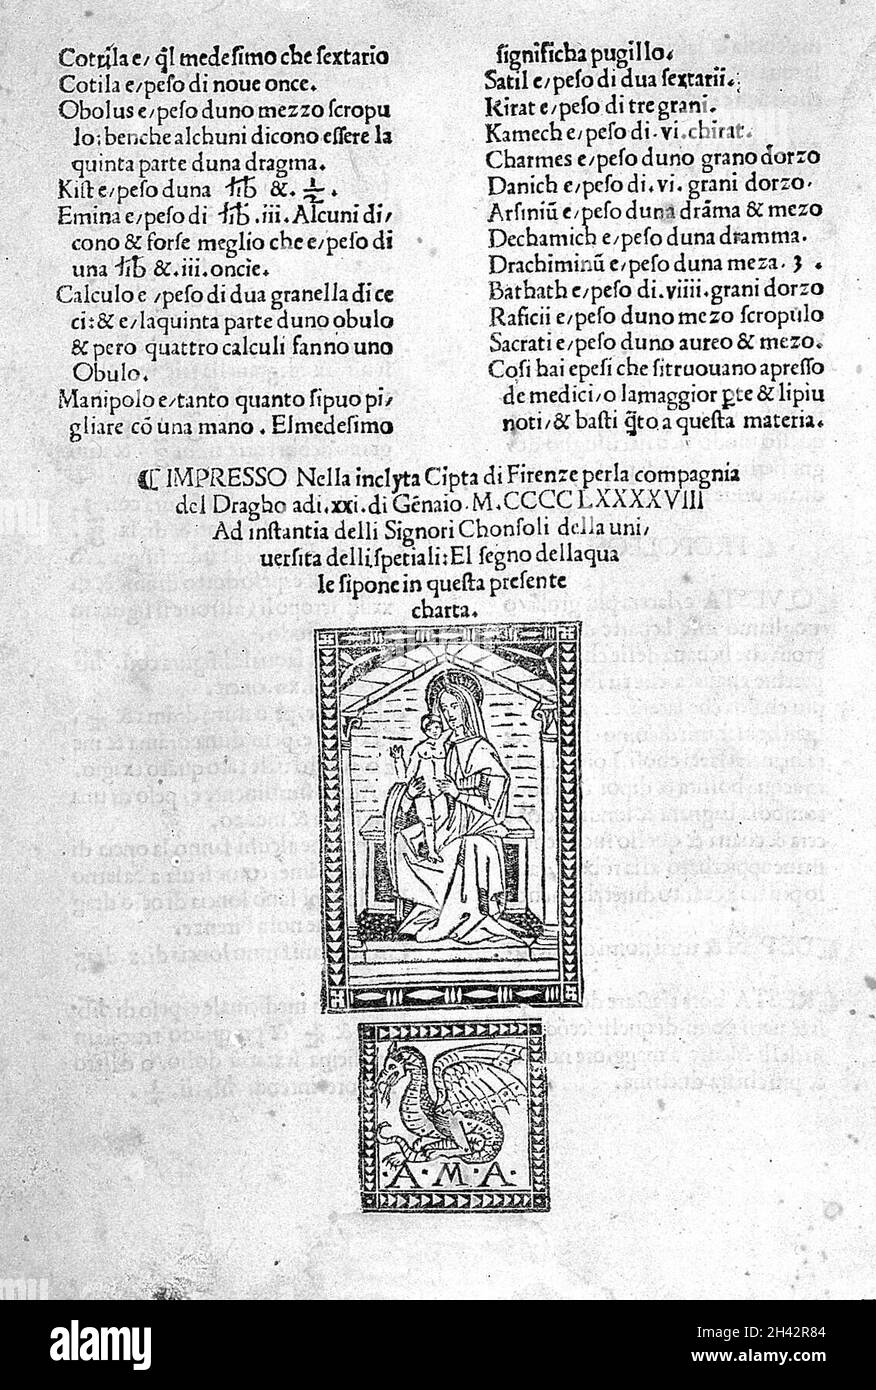 Cotrila e/ q̃l medesimo che sextario
Cotila e/peso di noue once.
Obolus e/peso duno mezzo scropu
lo: benche alchuni dicono essere la
quinta parte duna dragma.
Kist e/peso duna lib &. 1/2.
Emina e/peso di lib. .iii. Alcuni di/
cono & forse meglio che e/peso di
una lib &.iii. oncie.
Calculo e /peso di dua granella di ce
ci: & e/laquinta parte duno obulo
& pero quattro calculi fanno uno
Obulo.
Manipolo e/tanto quanto sipuo pi/
gliare cõ una mano. Elmedesimo
significha pugillo.
Satil e/peso di dua sextarii.
Kirat e/peso di tre grani.
Kamech e/peso di .vi. chirat.
Charmes e/peso duno grano dorzo
Danich e/peso di .vi. grani dorzo.
Arsiniũ e/peso duna drãma & mezo
Dechamich e/peso duna dramma.
Drachiminũ e/peso duna meza ʒ.
Bathath e/peso di .viiii. grani dorzo
Raficii e/peso duno mezo scropulo
Sacrati e/peso duno aureo & mezo.
Cosi hai epesi che sitruouano apresso
de medici/o lamaggior ꝑte & lipiu
noti/& basti q̃to a questa materia.
¶ IMPRESSO Nella inclyta Cipta di Firenze perla compagnia
del Dragho adi .xxi. di Gẽnaio M.CCCCLXXXXVIII
Ad instantia delli Signori Chonsoli della uni/
uersita delli spetiali: El segno dellaqua
le sipone in questa presente
charta.
·A·M·A·
alamy
Image ID: 2H42R84
www.alamy.com